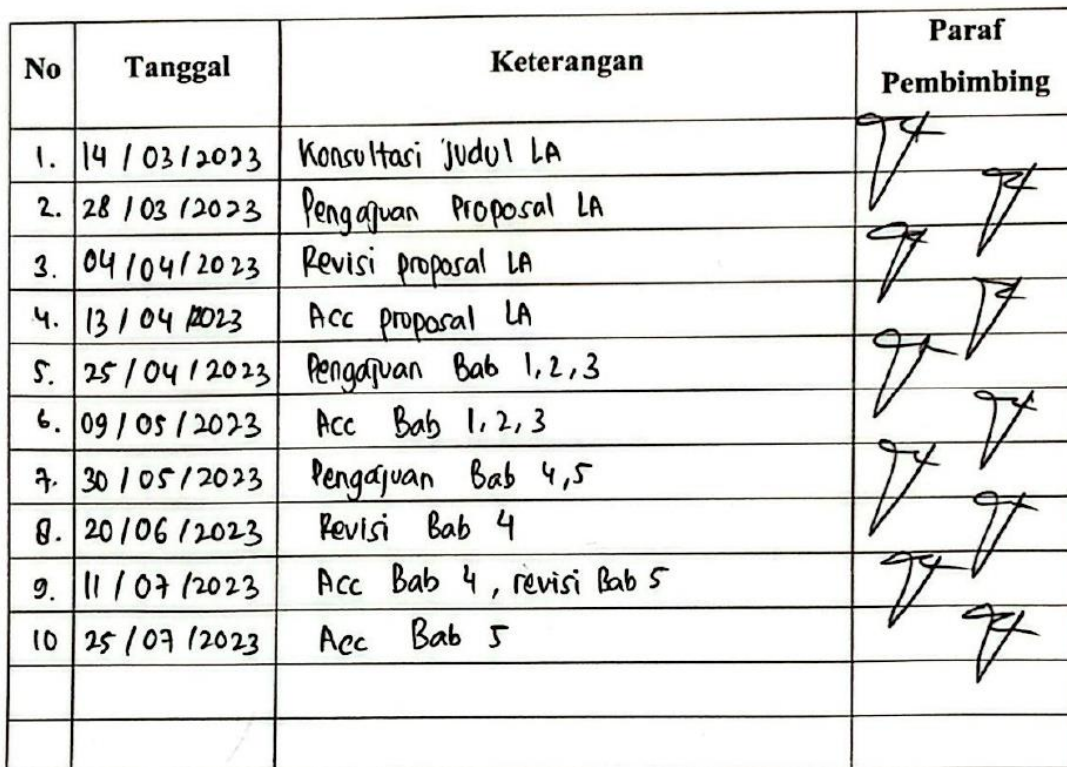 No Tanggal Keterangan Paraf Pembimbing
1. 14 / 03 / 2023 Konsultasi Judul LA
2. 28 / 03 / 2023 Pengajuan Proposal LA
3. 04 / 04 / 2023 Revisi proposal LA
4. 13 / 04 / 2023 Acc proposal LA
5. 25 / 04 / 2023 Pengajuan Bab 1, 2, 3
6. 09 / 05 / 2023 Acc Bab 1, 2, 3
7. 30 / 05 / 2023 Pengajuan Bab 4,5
8. 20 / 06 / 2023 Revisi Bab 4
9. 11 / 07 / 2023 Acc Bab 4, revisi Bab 5
10 25 / 07 / 2023 Acc Bab 5